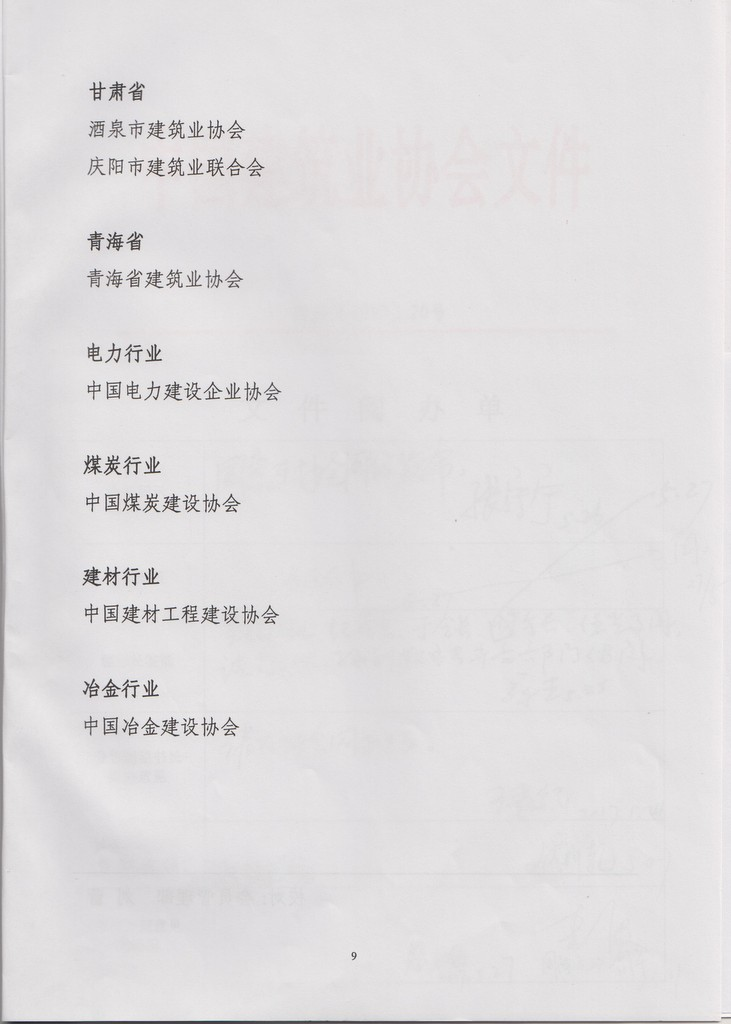 甘肃省
酒泉市建筑业协会
庆阳市建筑业联合会
青海省
青海省建筑业协会
电力行业
中国电力建设企业协会
煤炭行业
中国煤炭建设协会
建材行业
中国建材工程建设协会
冶金行业
中国冶金建设协会
9